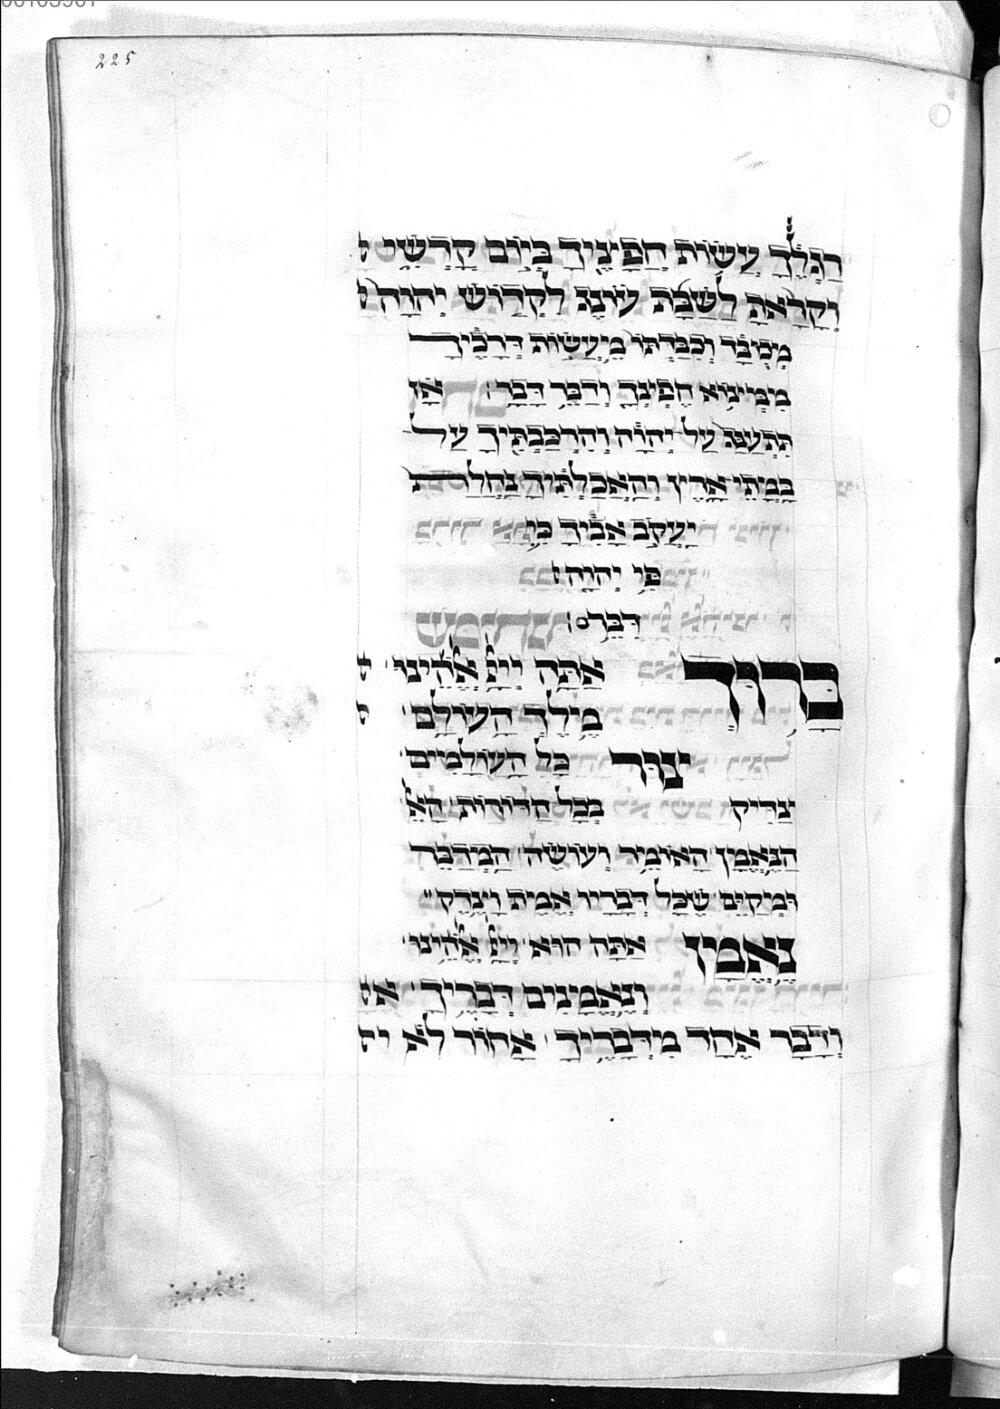 225
רַגְלֶךָ עֲשׂוֹת חֲפָצֶיךָ בְּיוֹם קָדְשִׁי
וְקָרָאתָ לַשַּׁבָּת עוֹנֶג לִקְדוֹשׁ יְהוָה
מְכֻבָּד וְכִבַּדְתּוֹ מֵעֲשׂוֹת דְּרָכֶיךָ
מִמְּצוֹא חֶפְצְךָ וְדַבֵּר דָּבָר׃ אָז
תִּתְעַנַּג עַל יְהוָה וְהִרְכַּבְתִּיךָ עַל
בָּמֳתֵי אָרֶץ וְהַאֲכַלְתִּיךָ נַחֲלַת
יַעֲקֹב אָבִיךָ כִּי
פִּי יְהוָה׃
דִּבֵּר׃
בָּרוּךְ אַתָּה יְיָ אֱלֹהֵינוּ
מֶלֶךְ הָעוֹלָם
צוּר כָּל הָעוֹלָמִים
צַדִּיק בְּכָל הַדּוֹרוֹת הָאֵ
הַנֶּאֱמָן הָאוֹמֵר וְעוֹשֶׂה הַמְדַבֵּר
וּמְקַיֵּם שֶׁכָּל דְּבָרָיו אֱמֶת וָצֶדֶק
נֶאֱמָן אַתָּה הוּא יְיָ אֱלֹהֵינוּ
וְנֶאֱמָנִים דְּבָרֶיךָ
וְדָבָר אֶחָד מִדְּבָרֶיךָ אָחוֹר לֹא